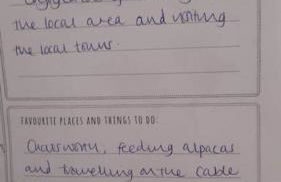 the local area and visiting
the local towns.
FAVOURITE PLACES AND THINGS TO DO:
Chatsworth, feeding alpacas
and travelling on the cable